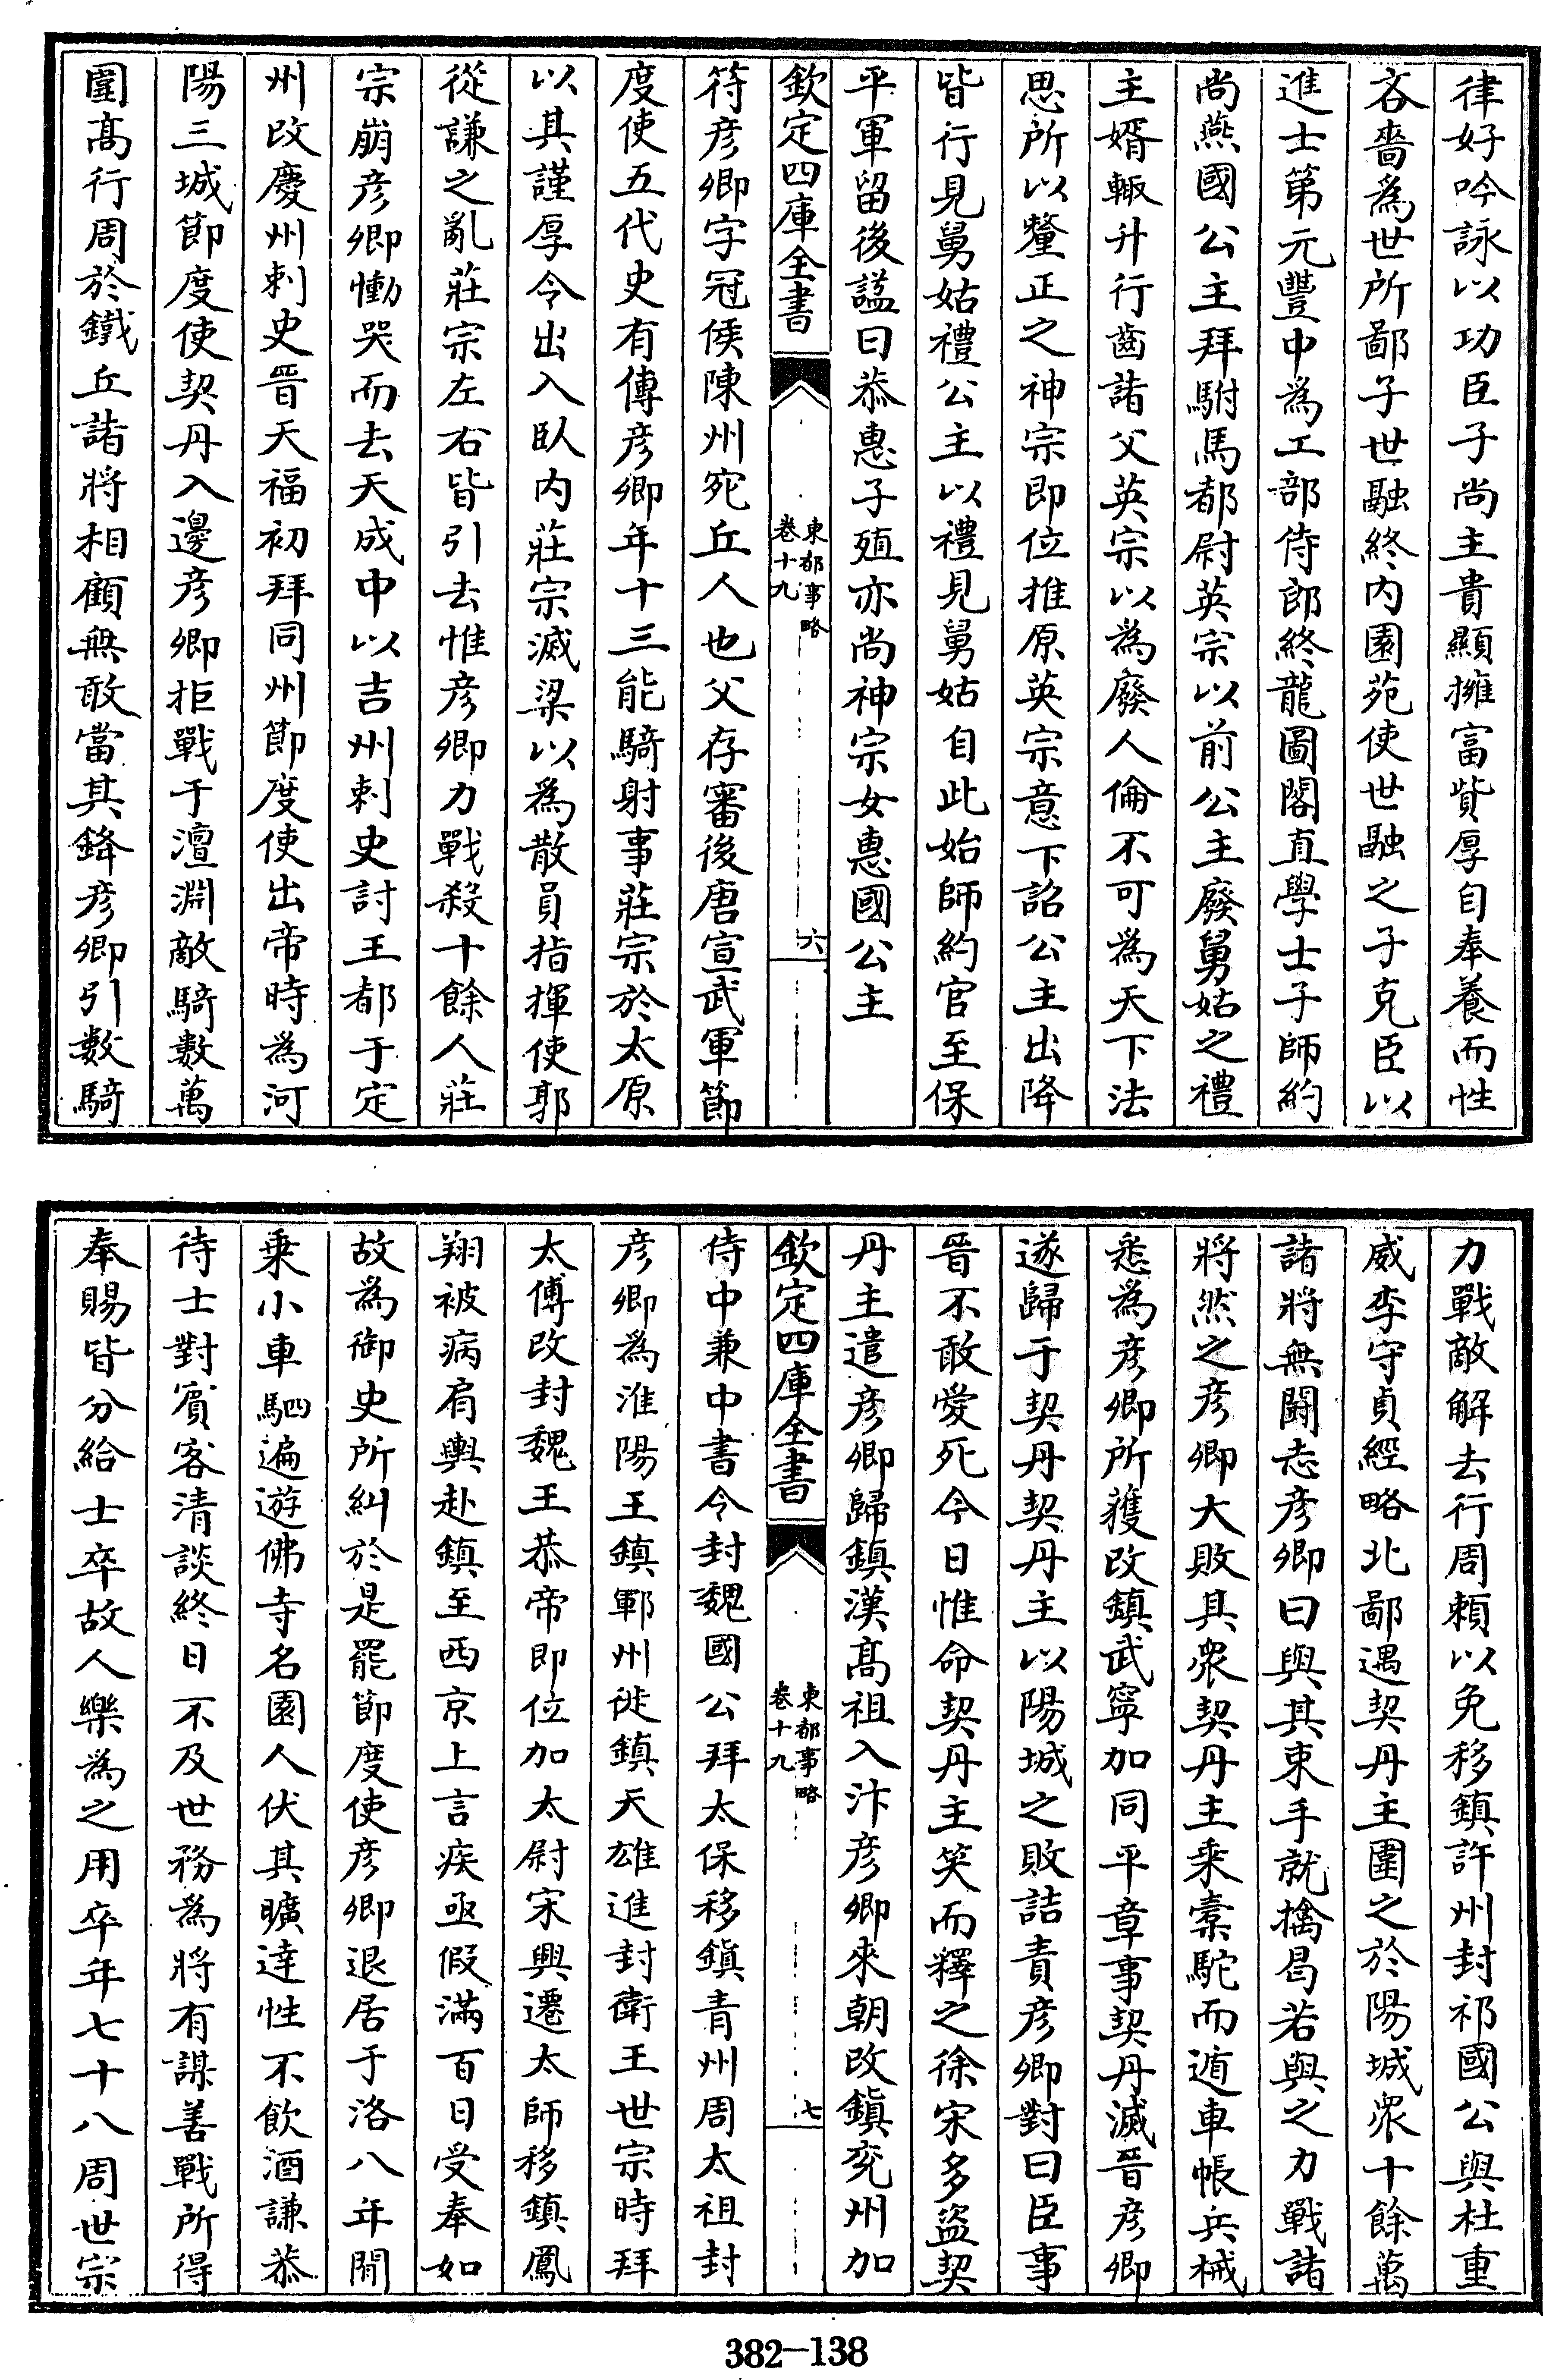 律好吟詠以功臣子尚主貴顯擁富貲厚自奉養而性
吝嗇為世所鄙子世融終內園苑使世融之子克臣以
進士第元豐中為工部侍郎終龍圖閣直學士子師約
尚燕國公主拜駙馬都尉英宗以前公主廢舅姑之禮
主婿輙升行齒諸父英宗以為廢人倫不可為天下法
思所以釐正之神宗即位推原英宗意下詔公主出降
皆行見舅姑禮公主以禮見舅姑自此始師約官至保
平軍留後諡曰恭惠子殖亦尚神宗女惠國公主
欽定四庫全書
東都事略
卷十九
六
符彥卿字冠侯陳州宛丘人也父存審後唐宣武軍節
度使五代史有傳彥卿年十三能騎射事莊宗於太原
以其謹厚令出入臥內莊宗滅梁以為散員指揮使郭
從謙之亂莊宗左右皆引去惟彥卿力戰殺十餘人莊
宗崩彥卿慟哭而去天成中以吉州刺史討王都于定
州改慶州刺史晉天福初拜同州節度使出帝時為河
陽三城節度使契丹入邊彥卿拒戰于澶淵敵騎數萬
圍髙行周於鐵丘諸將相顧無敢當其鋒彥卿引數騎
力戰敵解去行周頼以免移鎮許州封祁國公與杜重
威李守貞經略北鄙遇契丹主圍之於陽城眾十餘萬
諸將無鬪志彥卿曰與其束手就擒曷若與之力戰諸
將然之彥卿大敗其眾契丹主乘橐駝而遁車帳兵械
悉為彥卿所獲改鎮武寧加同平章事契丹滅晉彥卿
遂歸于契丹契丹主以陽城之敗詰責彥卿對曰臣事
晉不敢愛死今日惟命契丹主笑而釋之徐宋多盜契
丹主遣彥卿歸鎮漢髙祖入汴彥卿來朝改鎮兗州加
欽定四庫全書
東都事略
卷十九
七
侍中兼中書令封魏國公拜太保移鎮青州周太祖封
彥卿為淮陽王鎮鄆州徙鎮天雄進封衛王世宗時拜
太傅改封魏王恭帝即位加太尉宋興遷太師移鎮鳳
翔被病肩輿赴鎮至西京上言疾亟假滿百日受奉如
故為御史所糾於是罷節度使彥卿退居于洛八年閒
乗小車駟遍遊佛寺名園人伏其曠達性不飲酒謙恭
待士對賓客清談終日不及世務為將有謀善戰所得
奉賜皆分給士卒故人樂為之用卒年七十八周世宗
382—138